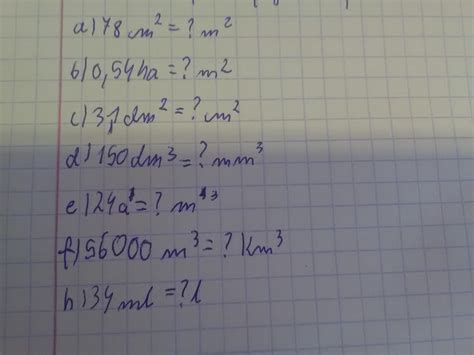 a) 78 cm² = ? m²
b) 0,54ha = ? m²
c) 3,1 dm² = ? cm²
d) 150dm³ = ? mm³
e) 24a = ? m³
f) 56000 m³ = ? km³
h) 34 ml = ? l